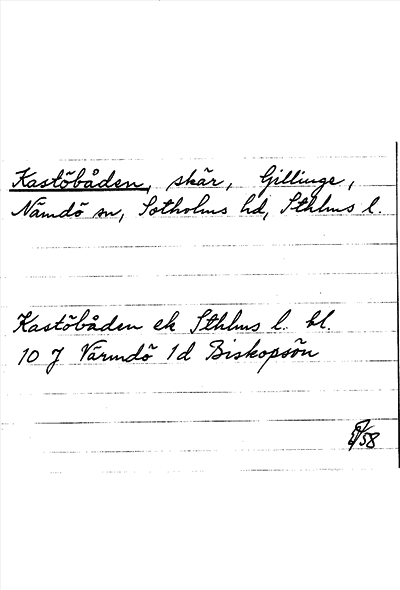 Kastöbåden, skär, Gillinge,
Nämdö sn, Sotholms hd, Sthlms l.
Kastöbåden ek Sthlms l. bl.
10 J Värmdö 1d Biskopsön
/58